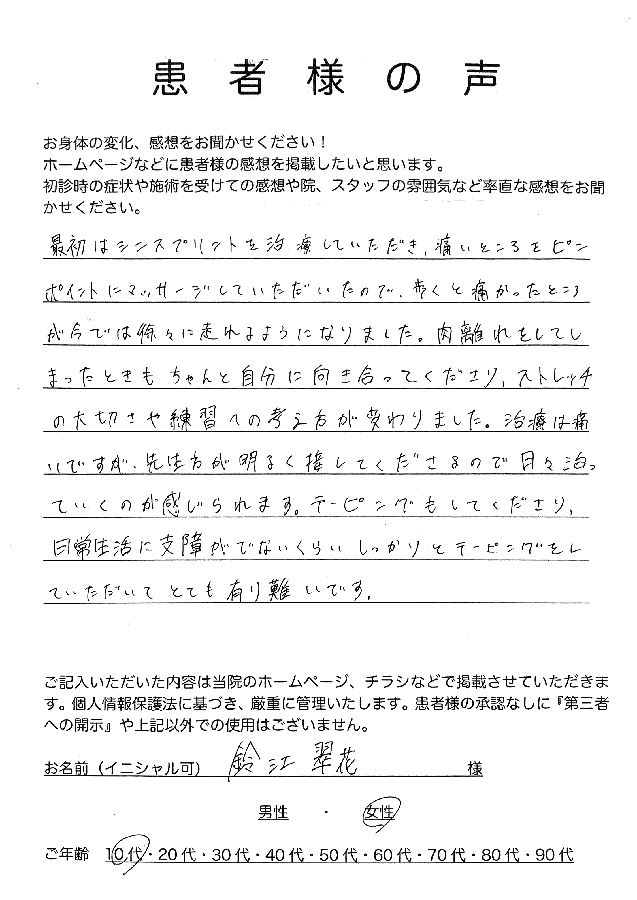 患者様の声
お身体の変化、感想をお聞かせください！
ホームページなどに患者様の感想を掲載したいと思います。
初診時の症状や施術を受けての感想や院、スタッフの雰囲気など率直な感想をお聞
かせください。
最初はシンスプリントを治療していただき、痛いところをピン
ポイントにマッサージしていただいたので、歩くと痛かったところ
が今では徐々に走れるようになりました。肉離れをしてし
まったときもちゃんと自分に向き合ってくださり、ストレッチ
の大切さや練習への考え方が変わりました。治療は痛
いですが、先生方が明るく接してくださるので日々治っ
ていくのが感じられます。テーピングもしてくださり、
日常生活に支障がでないくらいしっかりとテーピングをし
ていただいてとても有り難いです。
ご記入いただいた内容は当院のホームページ、チラシなどで掲載させていただきま
す。個人情報保護法に基づき、厳重に管理いたします。患者様の承認なしに『第三者
への開示』や上記以外での使用はございません。
お名前（イニシャル可） 鈴江 翠花 様
男性 ・ 女性
ご年齢 10代・20代・30代・40代・50代・60代・70代・80代・90代